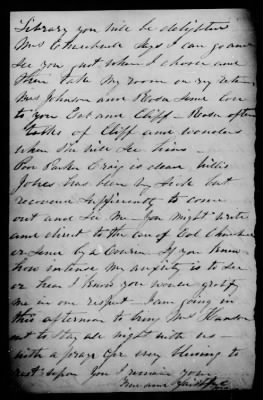 Library you will be delighted
Mrs Churchill says I can go and
see you just when I choose and
then take my room on my return
Mrs Johnson and Rosa send love
to you Eat and Cliff - Rosa often
talks of Cliff and wonders
when she will see him -
Poor Parker Craig is dead. Willis
Jones has been very sick but
recovered sufficiently to come
out and see me - You might write
and direct to the care of Col Churchill
or send by a Courier If you knew
how intense my anxiety is to see
or hear I know you would gratify
me in one respect - I am going in
this afternoon to bring Mrs
out to stay all night with us -
with a prayer for every blessing to
rest upon you I remain your
true and faithful